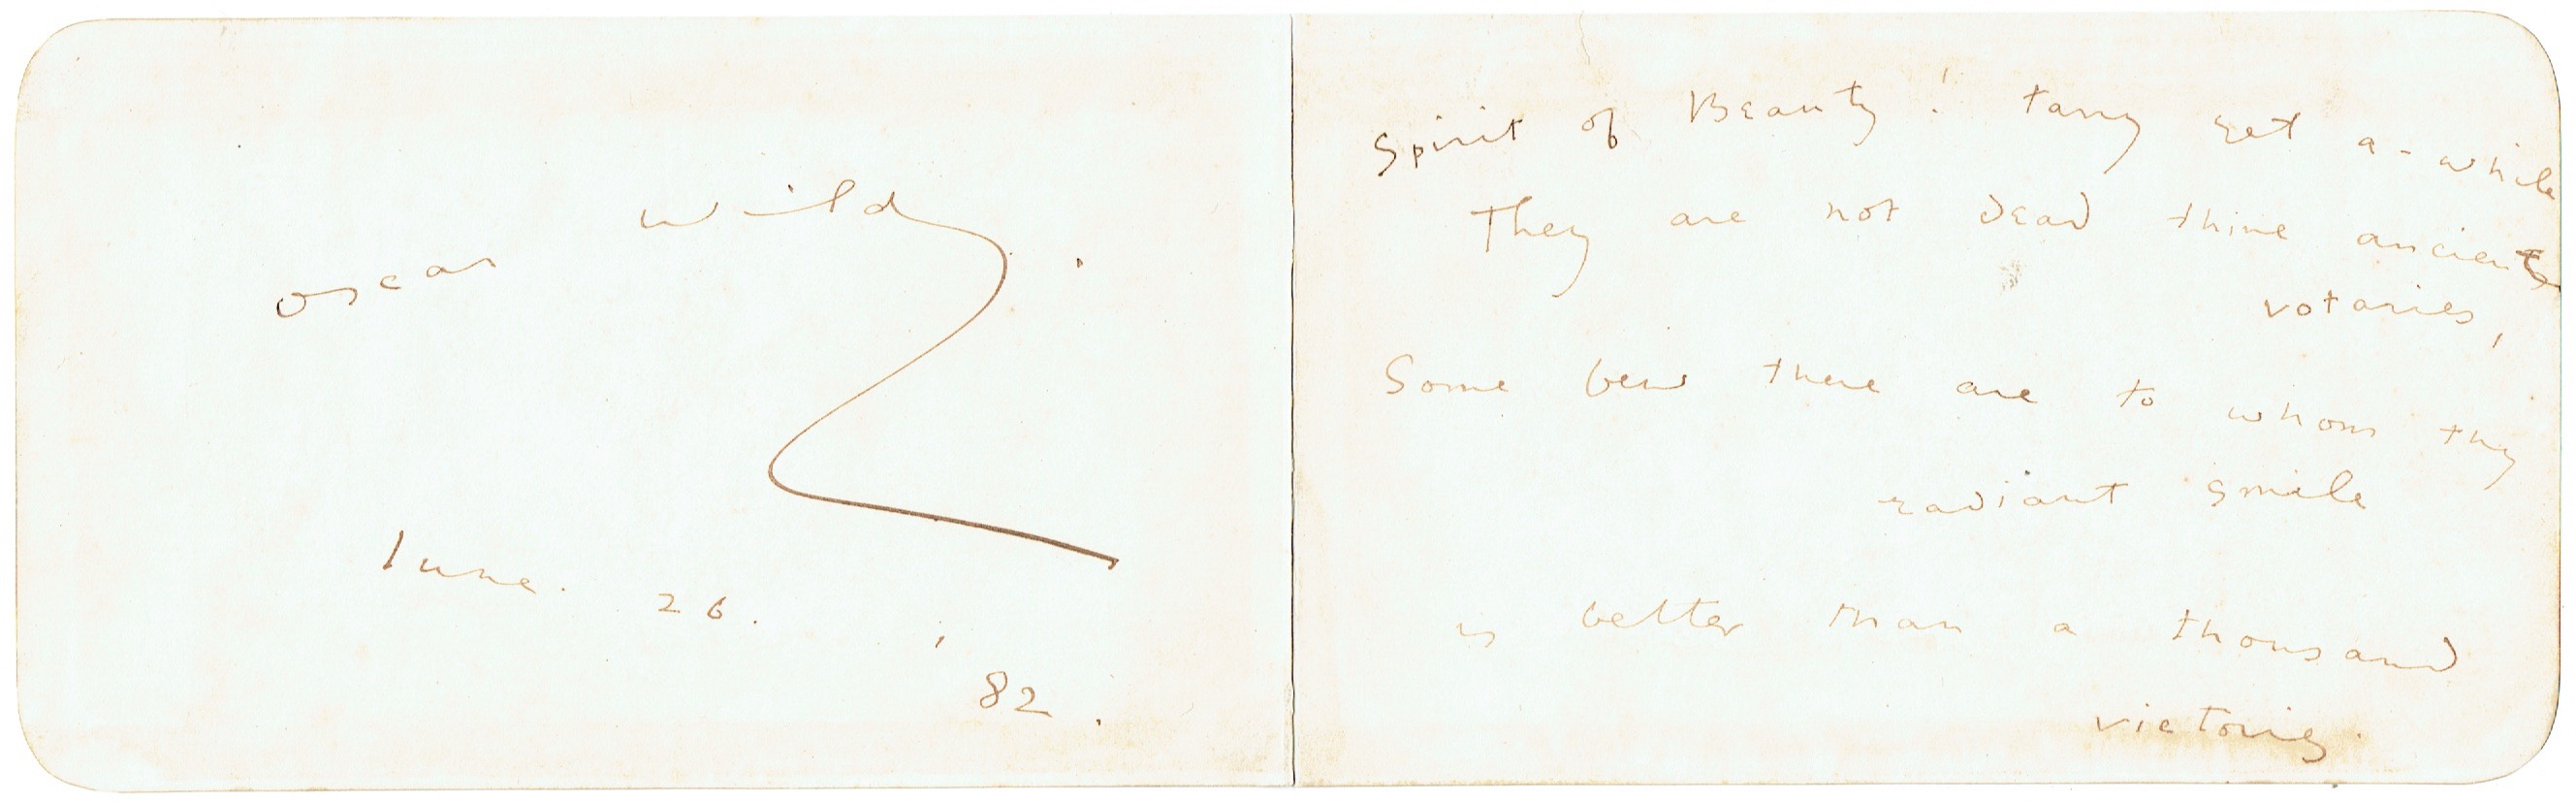 Oscar Wilde.
June. 26.
'82.
Spirit of Beauty! tarry yet a-while
They are not dead thine ancient
votaries,
Some few there are to whom thy
radiant smile
is better than a thousand
victories.